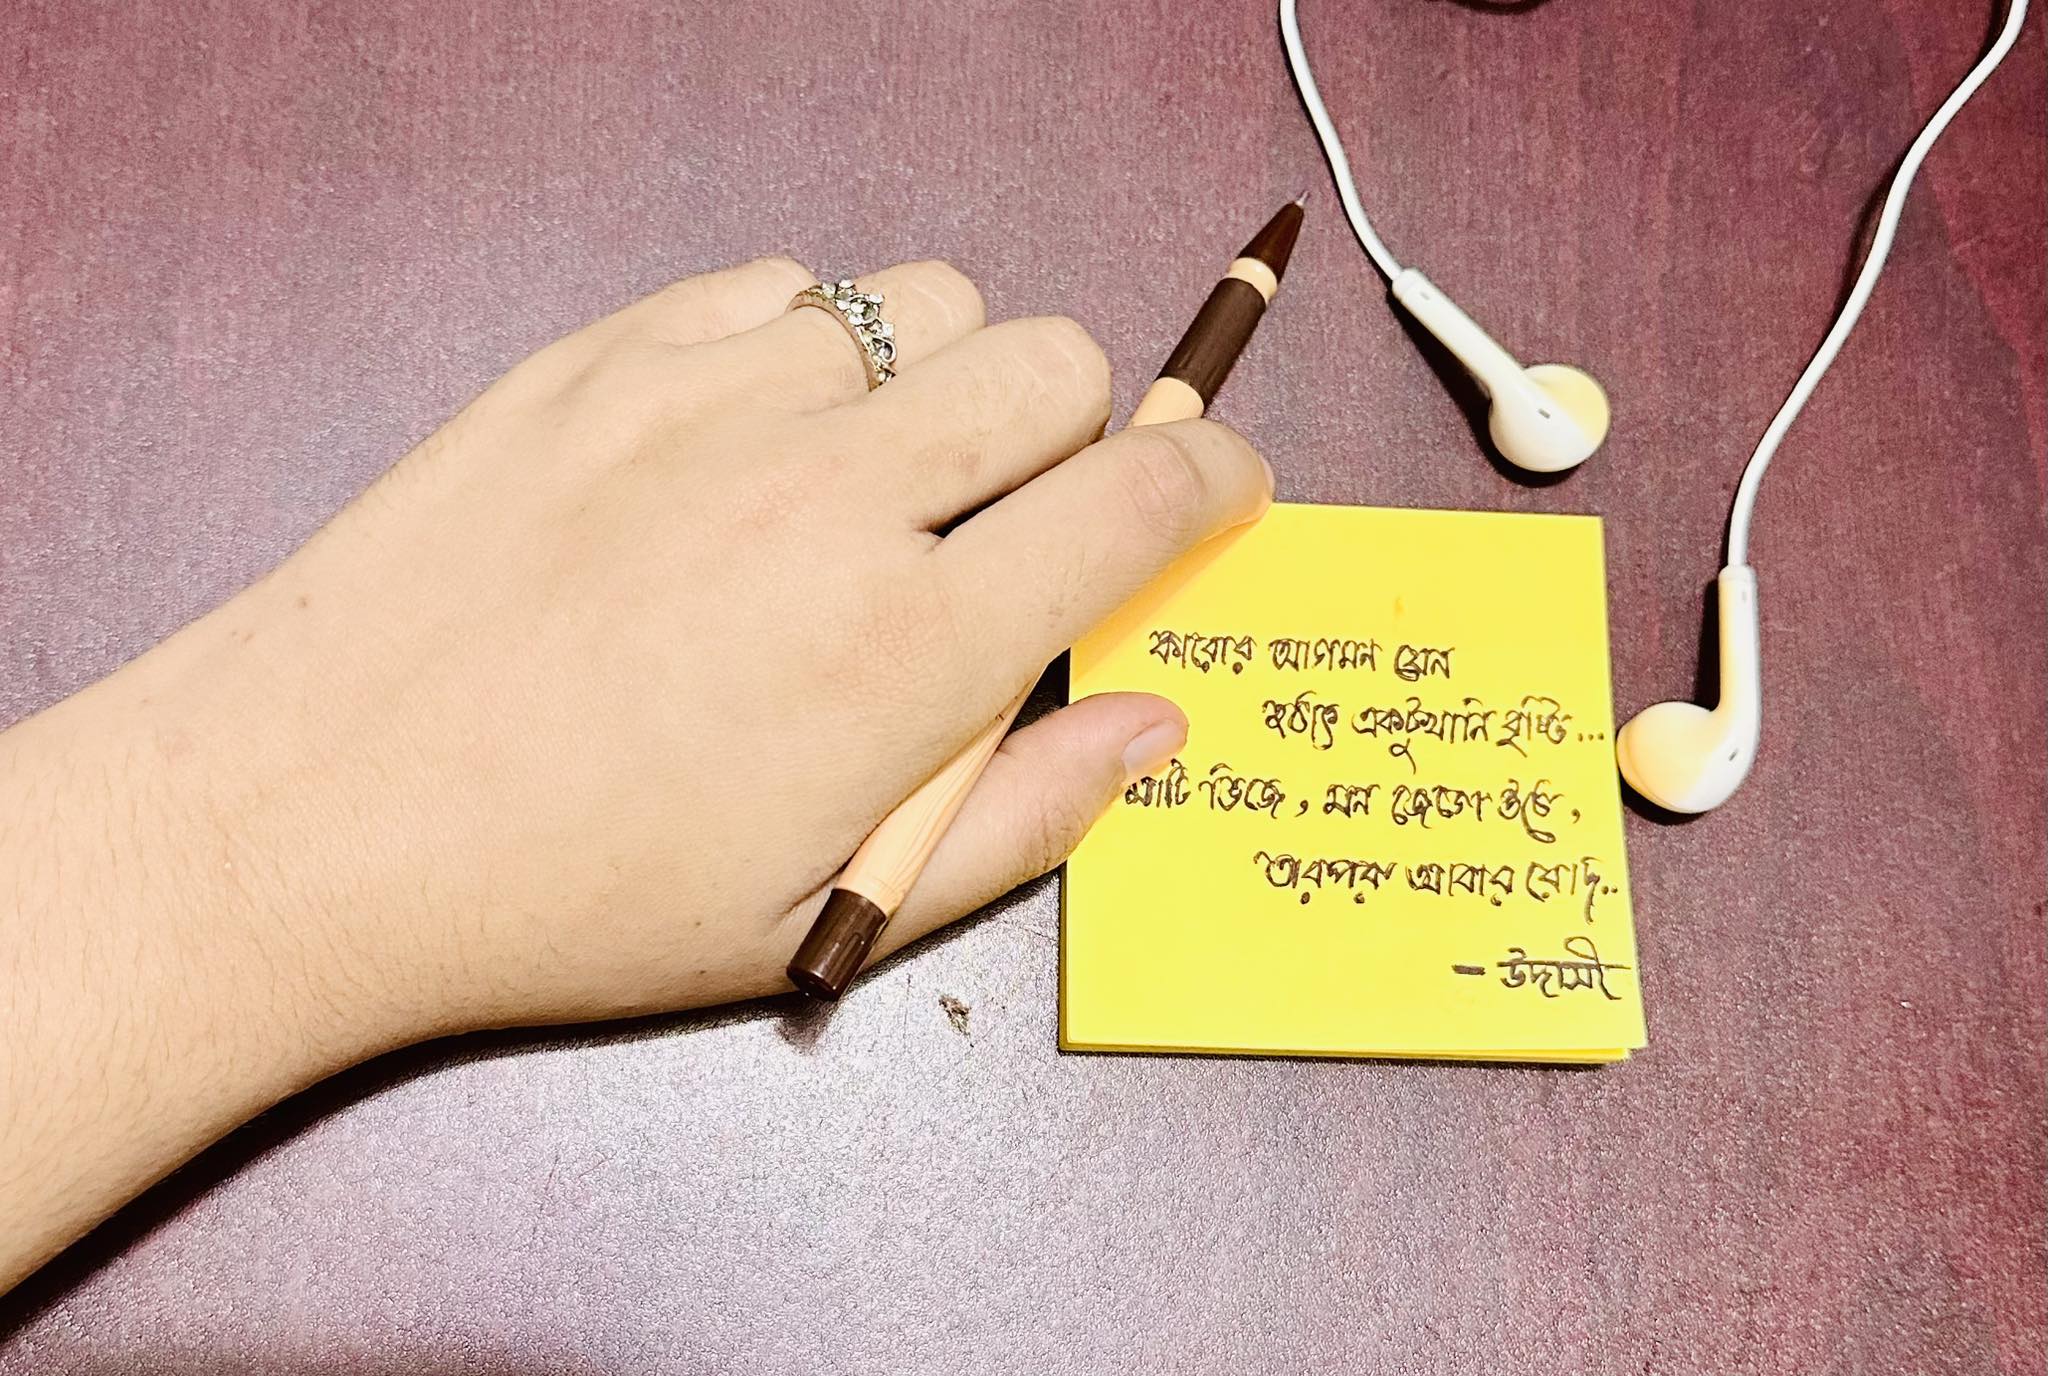 কারোর আগমন যেন
হঠাৎ একটুখানি বৃষ্টি...
মাটি ভিজে, মন জেগে ওঠে,
তারপর আবার রোদ্দ..
- উদাসী